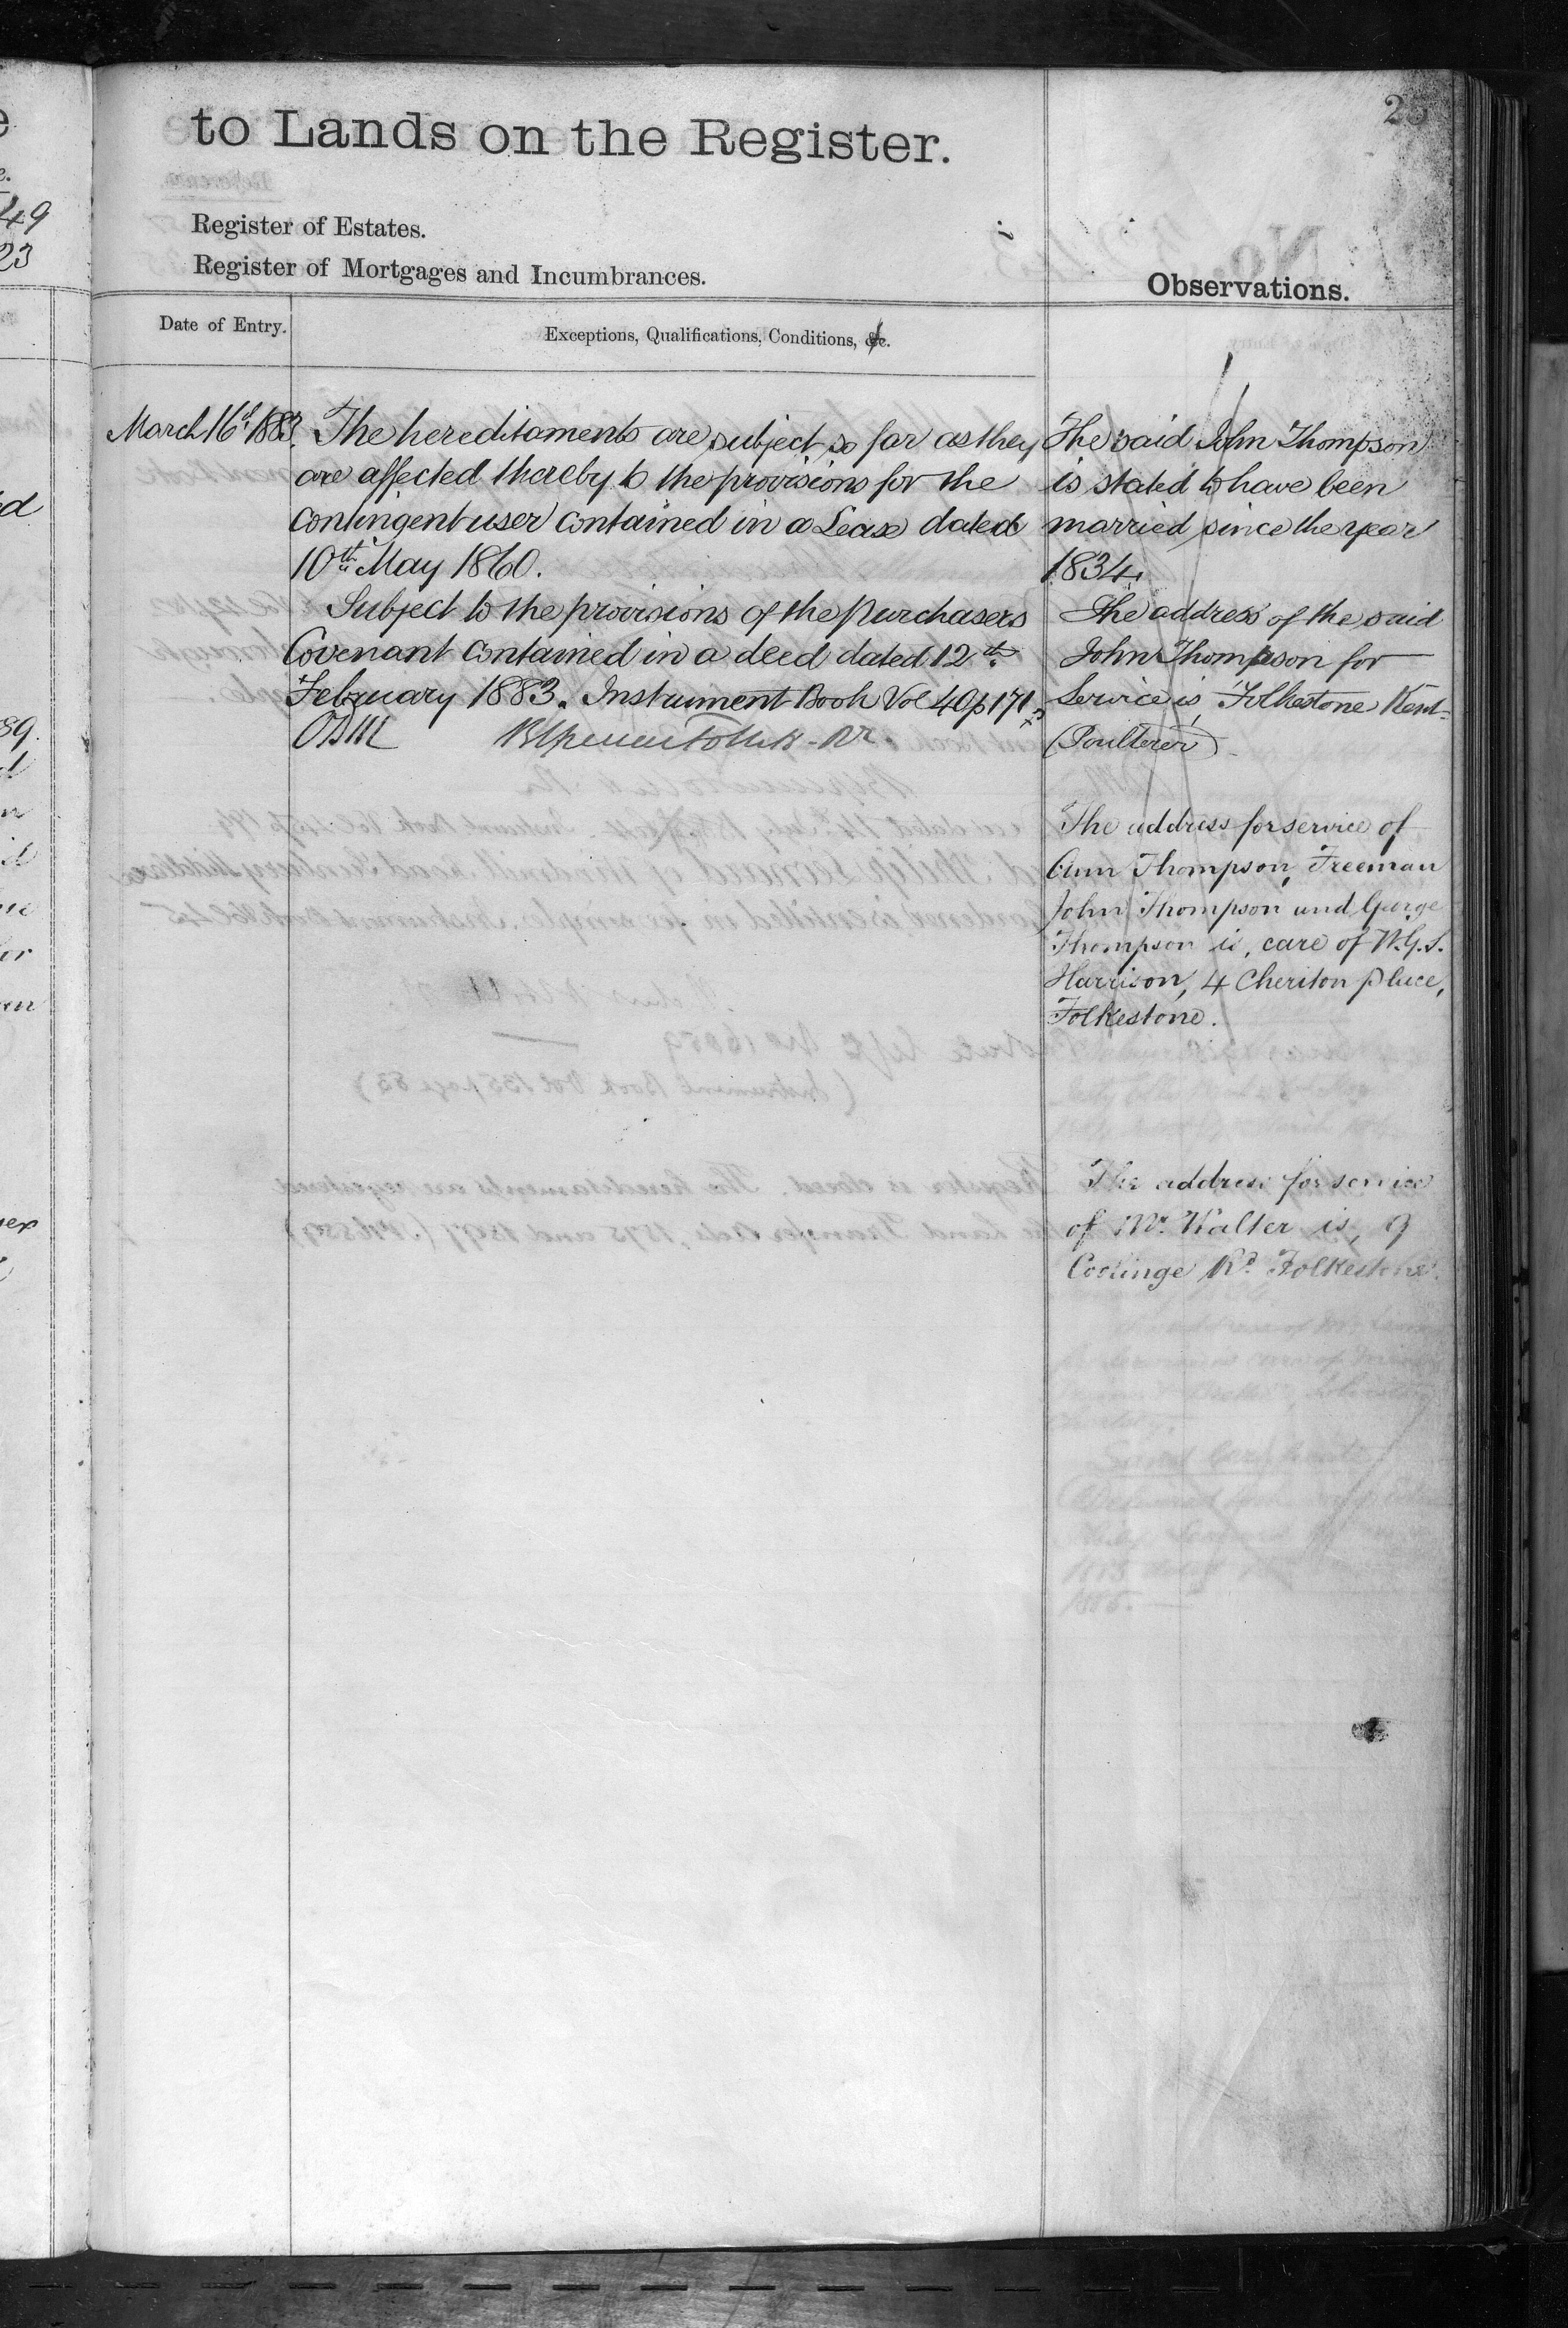 to Lands on the Register.
Register of Estates.
Register of Mortgages and Incumbrances.
Observations.
Date of Entry.
Exceptions, Qualifications, Conditions, &c.
March 16th 1883.
The hereditaments are subject so far as they
are affected thereby to the provisions for the
contingent user contained in a Lease dated
10th May 1860.
Subject to the provisions of the Purchasers
Covenant contained in a deed dated 12th
February 1883. Instrument Book Vol 40 p 171
The said John Thompson
is stated to have been
married since the year
1834.
The address of the said
John Thompson for
Service is, Folkestone Kent
(Poulterer)
The address for service of
Ann Thompson, Freeman
John Thompson and George
Thompson is, care of W.G.S.
Harrison, 4 Cheriton place,
Folkestone.
The address for service
of Mr. Walter is, 9
Coolinge Rd. Folkestone.